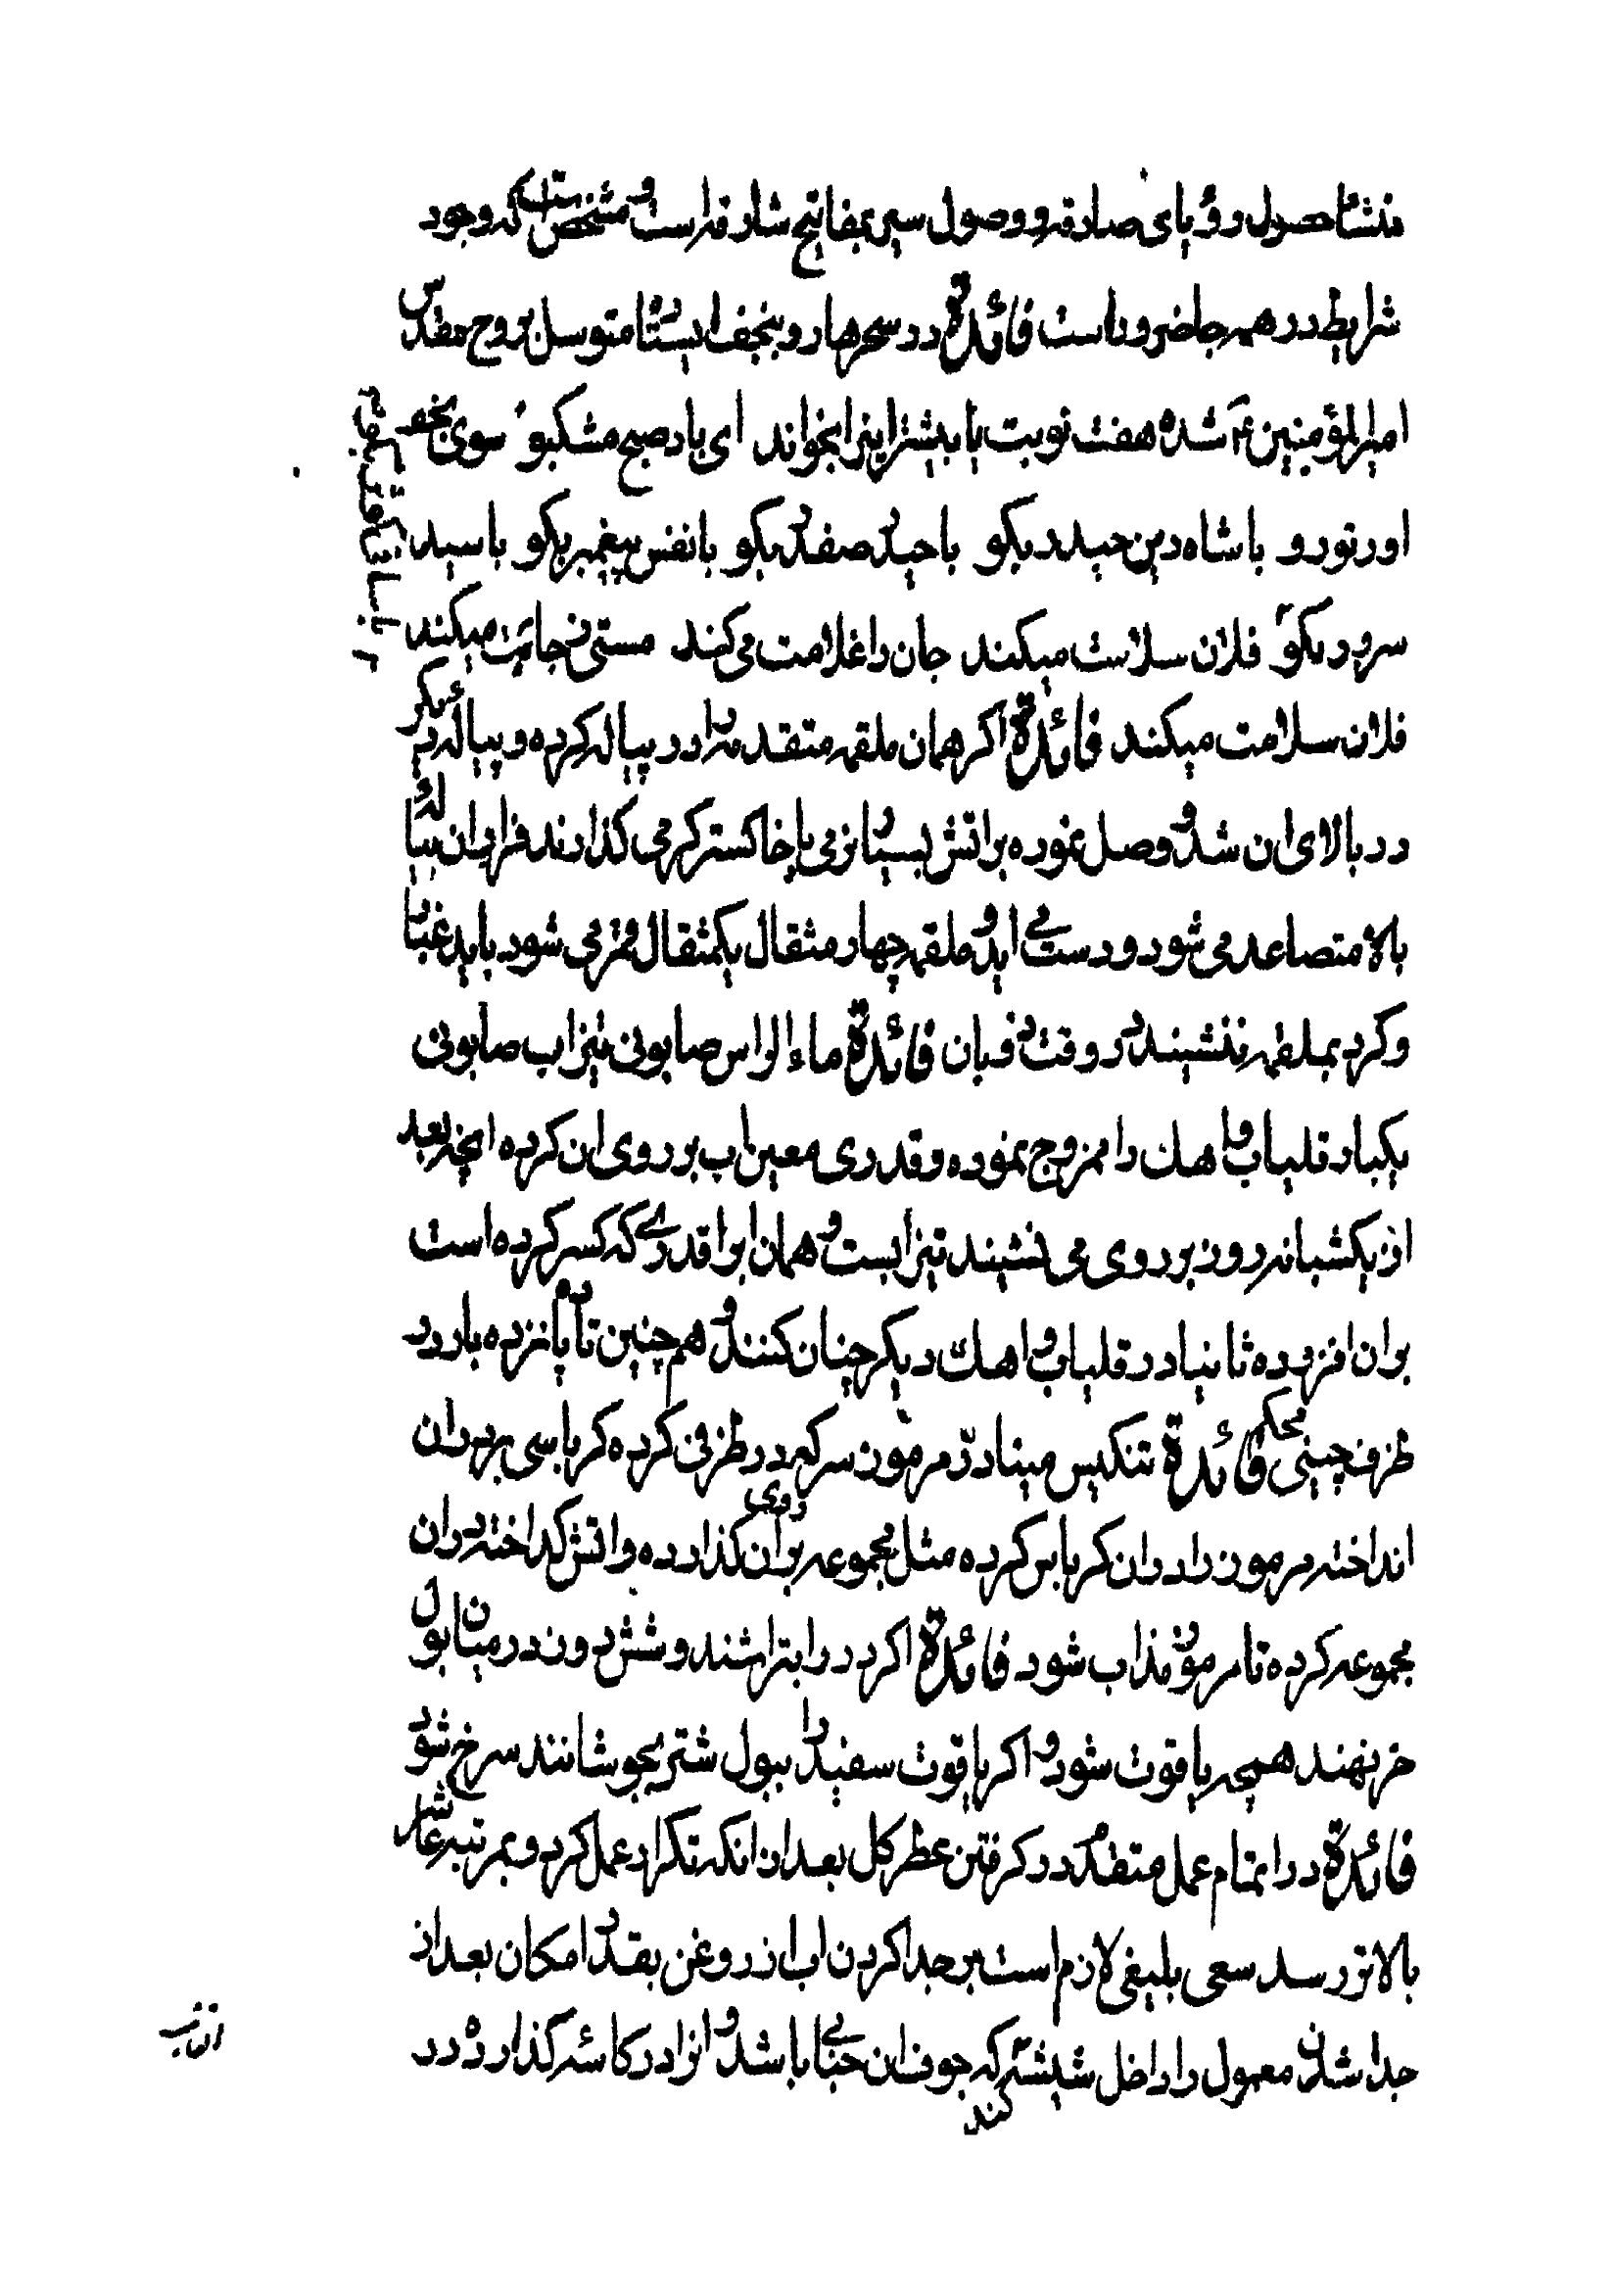 منشأ حصول رؤیای صادقه و وصول سیر بمفاتیح شارقه است و مشخص است که وجود
شرایط در همه جا ضرور است فائدة در سحرها رو بنجف ایستاده متوسل بروح مقدس
امیرالمؤمنین ع شده هفت نوبت یا بیشتر اینرا بخواند ای باد صبح مشکبو سوی نجف
اور تو رو با شاه دین حیدر بکو با حیدر صفدر بکو با نفس پیغمبر بکو با سید
سرور بکو فلان سلامت میکند جان را غلامت می کند مستی ز جامت میکند
فلان سلامت میکند فائدة اکر همان ملقمه متقدمه را در پیاله کرده و پیاله دیکر
در بالای ان شد و وصل نموده بر اتش بسیار نرمی یا خاکستر کرمی کذارند فرار بان پیاله
بالا متصاعد می شود و دست می اید و ملقمه چهار مثقال یکمثقال قمر می شود باید غبار
و کرد بملقمه ننشیند در وقت ذوبان فائدة ماء الراس صابونی تیزاب صابونی
یکبار قلیاب و اهك را ممزوج نموده و قدری معین اب بر روی ان کرده انچه بعد
از یکشبانه روز بر روی می نشیند تیزابست و همان ابرا قدری که کسر کرده است
بران افزوده ثانیا در قلیاب و اهك دیکر چنان کنند و هم چنین تا پانزده بار در
ظرف چینی محکم فائدة تنکیس مینا در مرموز سرکه در ظرفی کرده کرباسی بر سر ان
انداخته مرموز را در ان کرباس کرده مثل مجموعه بر روی ان کذارده و اتش کداخته در ان
مجموعه کرده تا مرموز مذاب شود فائدة اکر در را بتراشند و شش روز در میان بول
خر نهند همچه یاقوت شود و اکر یاقوت سفید را ببول شتر بجوشانند سرخ شود
فائدة در اتمام عمل متقدم در کرفتن عطر کل بعد از انکه تکرار عمل کرد و بمرتبه عاشر
بالاتر رسد سعی بلیغی لازم است بر جدا کردن اب از روغن بقدر امکان بعد از
جدا شدن معمول را داخل شیشه کند که جوفدان حبابی باشد و انرا در کاسه کذارده در